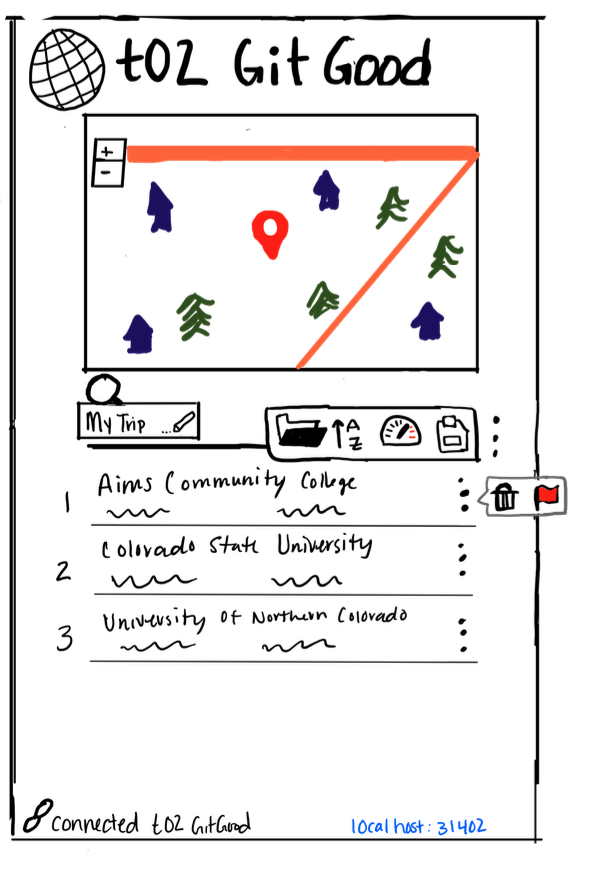 t02 Git Good
+
-
My Trip ...
A
Z
1 Aims Community College
2 Colorado State University
3 University of Northern Colorado
connected t02 GitGood localhost: 31402